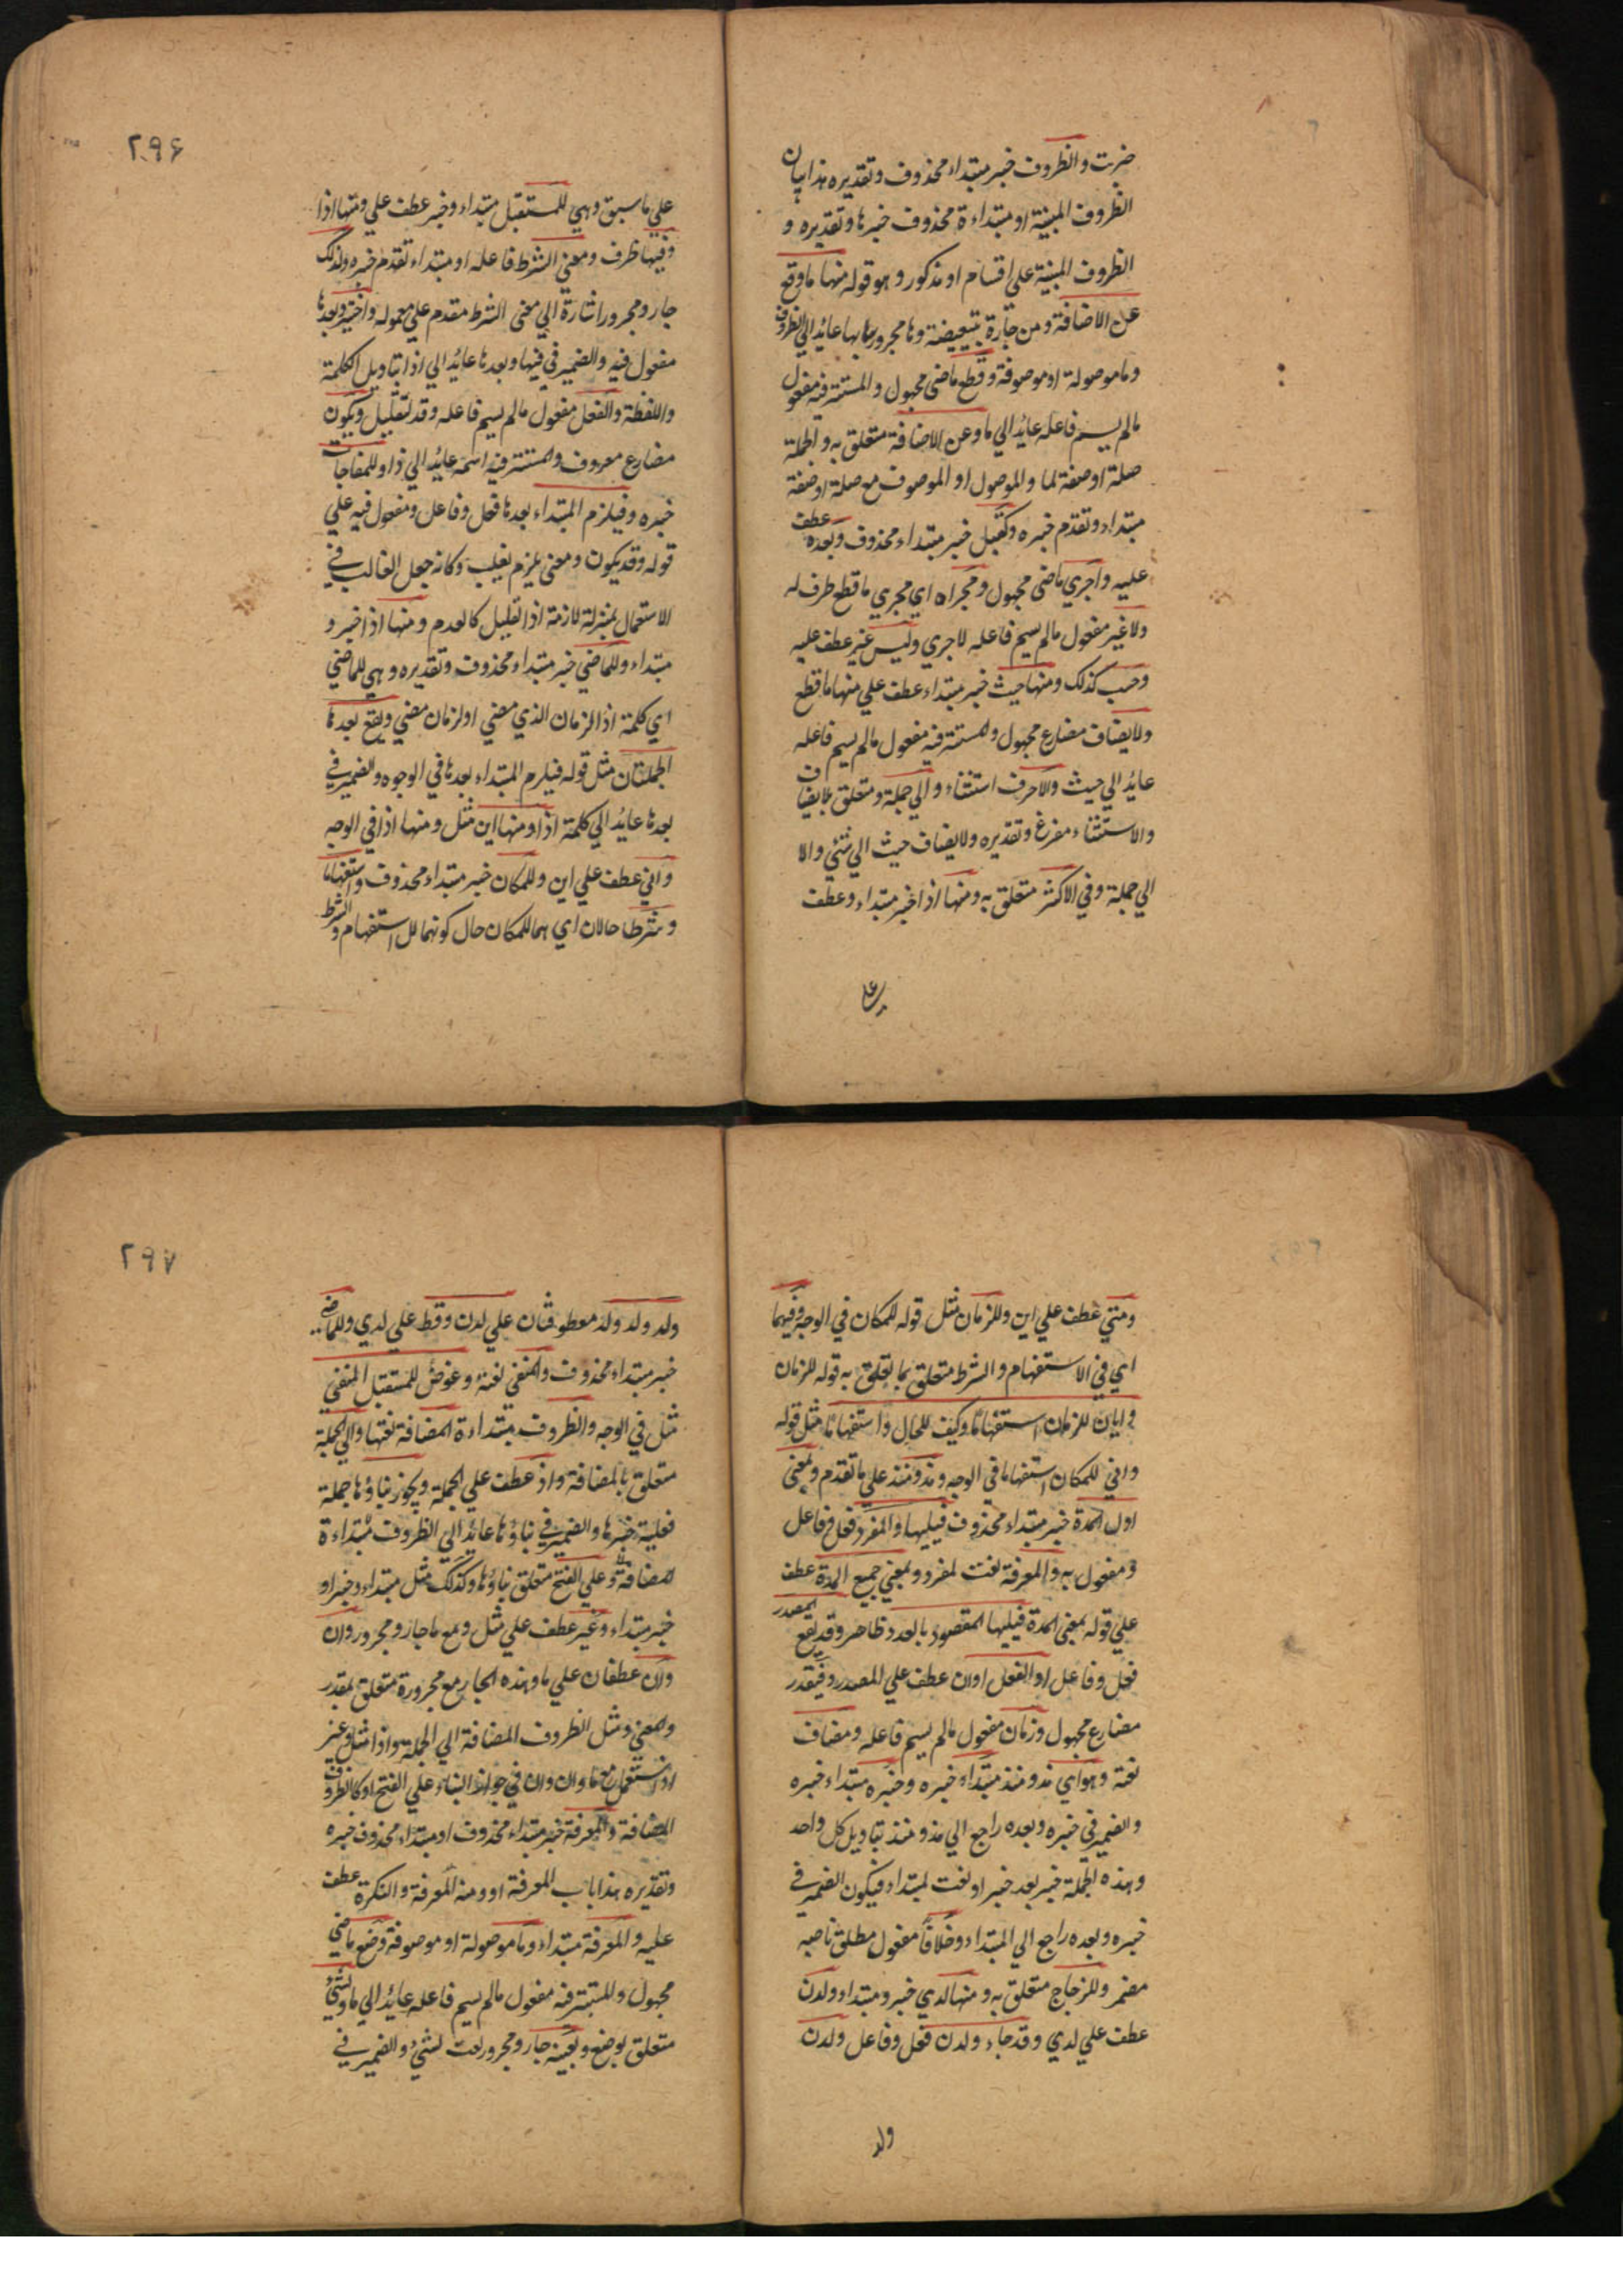 ضربت والظروف خبر مبتداء محذوف وتقديره هذا بيان
الظروف المبنية او مبتداءة محذوف خبرها وتقديره و
الظروف المبنية على اقسام او مذكور وهو قوله منها ما وقع
عن الاضافة ومن جارة تبعيضية وها مجرورها بها عائد الي الظروف
وما موصولة او موصوفة وقطع ماضي مجهول والمستتر فيه مفعول
مالم يسم فاعله عائد الي ما وعن الاضافة متعلق به والجملة
صلة او صفة لما والموصول او الموصوف مع صلة او صفة
مبتداء وتقدم خبره وكقبل خبر مبتداء محذوف وبعده عطف
عليه واجري ماضي مجهول ومجراه اي مجري ما قطع ظرف له
ولا غير مفعول مالم يسم فاعله لاجري وليس غير عطف عليه
وحسب كذلك ومنها حيث خبر مبتداء عطف علي منها ما قطع
ولا يضاف مضارع مجهول والمستتر فيه مفعول مالم يسم فاعله
عائد الي حيث والا حرف استثناء والي جملة ومتعلق بلا يضاف
والاستثناء مفرغ وتقديره ولا يضاف حيث الي شئ والا
الي جملة وفي الاكثر متعلق به ومنها اذا خبر مبتداء وعطف
علي
٢٩۶
علي ما سبق وهي للمستقبل مبتداء وخبر عطف علي ومنها اذا
وفيها ظرف ومعني الشرط فاعله او مبتداء تقدم خبره ولذلك
جار ومجرور اشارة الي معنى الشرط مقدم علي معموله واختير وبعدها
مفعول فيه والضمير في فيها وبعدها عائد الي اذا بتاويل الكلمة
واللفظة والفعل مفعول مالم يسم فاعله وقد لتقليل ويكون
مضارع معروف والمستتر فيه اسمه عائد الي ذا وللمفاجات
خبره وفيلزم المبتداء بعدها فعل وفاعل ومفعول فيه علي
قوله وقد يكون ومعني يلزم يغلب وكانه جعل الغالب في
الاستعمال بمنزلة لازمة اذا القليل كالعدم ومنها اذ اخبر و
مبتداء وللماضي خبر مبتداء محذوف وتقديره وهي للماضي
اي كلمة اذ الزمان الذي مضي او لزمان مضي ويقع بعدها
الجملتان مثل قوله فيلزم المبتداء بعدها في الوجوه والضمير في
بعدها عايد الي كلمة اذا ومنها اين مثل ومنها اذا في الوجه
واني عطف علي اين وللمكان خبر مبتداء محذوف واستفهاما
وشرطا حالان اي هما للمكان حال كونهما للاستفهام والشرط
ومتي عطف علي اين وللزمان مثل قوله للمكان في الوجه وفيهما
اي في الاستفهام والشرط متعلق بما يتعلق به قوله للزمان
وايان للزمان استفهاما وكيف للحال واستفهاما مثل قوله
واني للمكان استفهاما في الوجه ومذ ومنذ علي ما تقدم وبمعني
اول المدة خبر مبتداء محذوف فيليها والمفرد فعل وفاعل
ومفعول به والمعرفة نعت لمفرد وبمعني جميع المدة عطف
علي قوله بمعني المدة فيليها المقصود بالعدد ظاهر وقد يقع المصدر
فعل وفاعل او الفعل او ان عطف علي المصدر وفيقدر
مضارع مجهول وزمان مفعول مالم يسم فاعله ومضاف
نعته وهو اي مذ ومنذ مبتداء خبره وخبره مبتداء خبره
والضمير في خبره وبعده راجع الي مذ ومنذ بتاويل كل واحد
وهذه الجملة خبر بعد خبر او نعت لمبتداء فيكون الضمير في
خبره وبعده راجع الي المبتداء وخلافا مفعول مطلق ناصبه
مضمر وللزجاج متعلق به ومنها لدي خبر ومبتداء ولدن
عطف علي لدي وقد جاء ولدن فعل وفاعل ولدن
ولد
٢٩٧
ولد ولد ولد معطوفان علي لدن وقط علي لدي وللماضي
خبر مبتداء محذوف والمنفي لغته وعوض للمستقبل المنفي
مثل في الوجه والظروف مبتداءة المضافة نعتها والي الجملة
متعلق بالمضافة واذ عطف علي الجملة ويجوز بناؤها جملة
فعلية خبرها والضمير في بناؤها عائد الي الظروف مبتداءة
المضافة وعلي الفتح متعلق بناؤها وكذلك مثل مبتداء وخبر او
خبر مبتداء وغير عطف علي مثل ومع ما جار ومجرور وان
وان عطفان علي ما وهذه الجار مع مجرورة متعلق بمقدر
والمعني ومثل الظروف المضافة الي الجملة واذا مثل وغير
اذا استعمل مع ما وان وان في جواز البناء علي الفتح او كالظروف
المضافة والمعرفة خبر مبتداء محذوف او مبتداء محذوف خبره
وتقديره هذا باب المعرفة او ومنه المعرفة والنكرة عطف
عليه والمعرفة مبتداء وما موصولة او موصوفة وضع ماضي
مجهول والمستتر فيه مفعول مالم يسم فاعله عايد الي ما ولشئ
متعلق بوضع وبعينه جار ومجرور نعت لشئ والضمير في